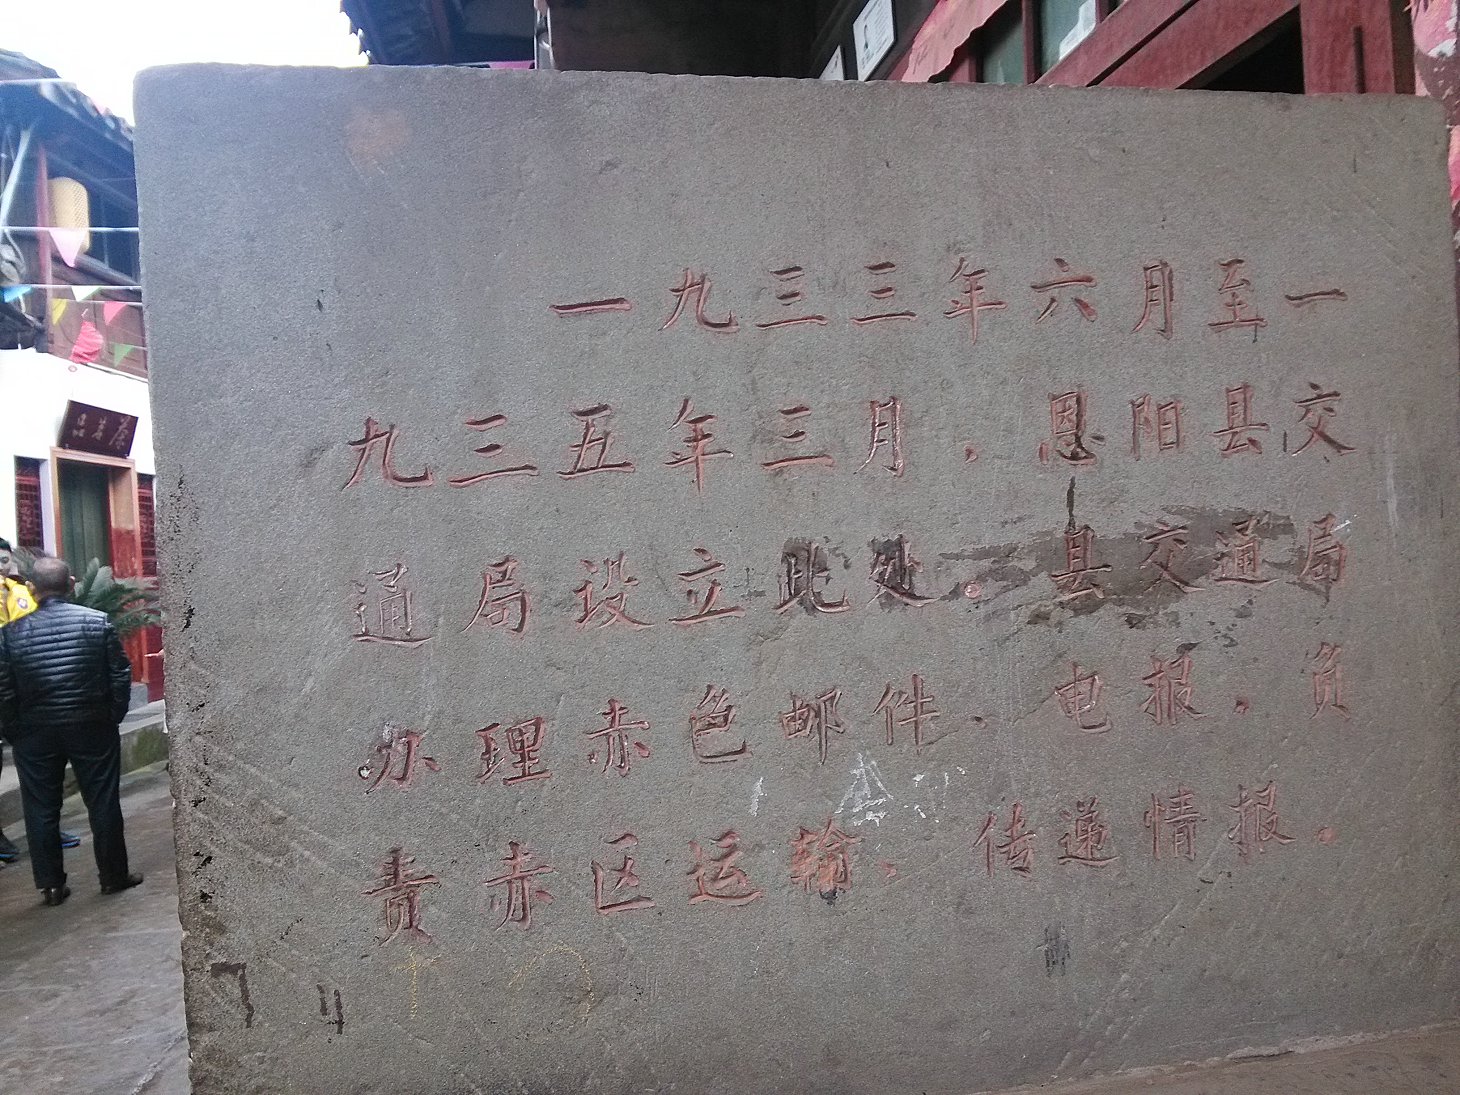 一九三三年六月至一
九三五年三月，恩阳县交
通局设立此处。县交通局
办理赤色邮件、电报，负
责赤区运输、传递情报。